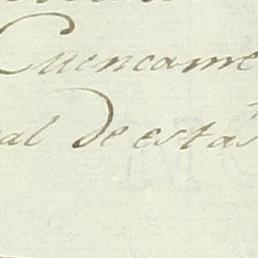 Cuencame
al de estas